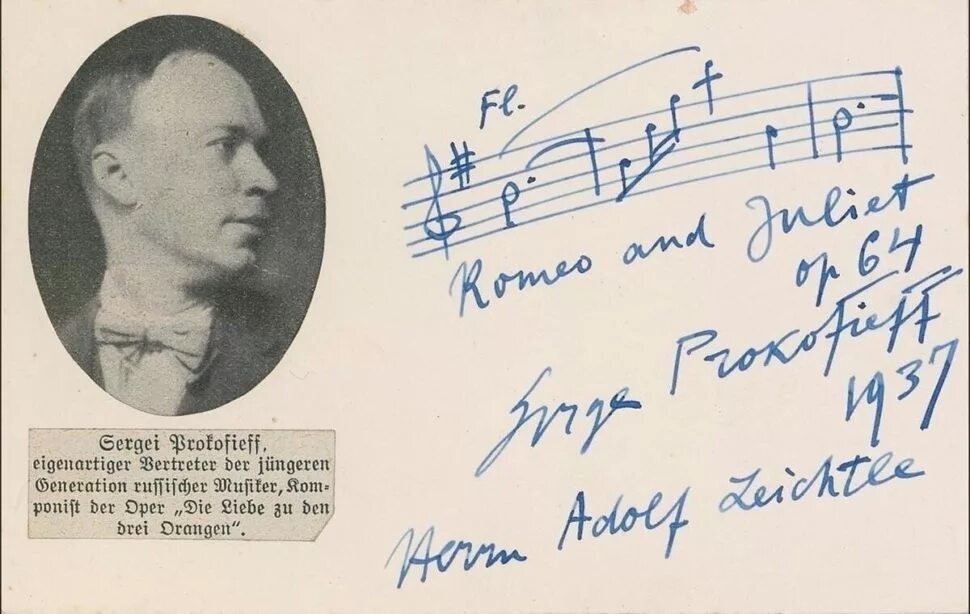 Sergei Prokofieff,
eigenartiger Vertreter der jüngeren
Generation russischer Musiker, Kom-
ponist der Oper „Die Liebe zu den
drei Orangen“.
Fl.
Romeo and Juliet
op 64
Serge Prokofieff
1937
Herrn Adolf Leichtle